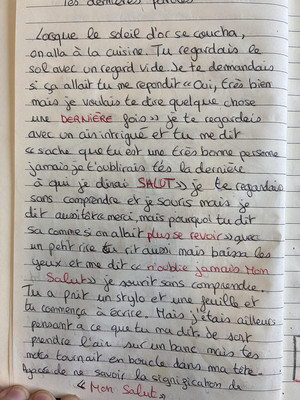 les dernières paroles
Lorsque le soleil d'or se coucha,
on alla à la cuisine. Tu regardais le
sol avec un regard vide. Je te demandais
si ça allait tu me repondit « Oui, très bien
mais je voulais te dire quelque chose
une DERNIÈRE fois » je te regardais
avec un air intrigué et tu me dit
« sache que tu est une très bonne personne
jamais je t'oublirais tés la dernière
à qui je dirai SALUT » je te regardais
sans comprendre et je souris mais je
dit aussi merci, mais pourquoi tu dit
sa comme si on allait plus se revoir » avec
un petit rire tu rit aussi mais baissa les
yeux et me dit « n'oublie jamais Mon
Salut » je sourit sans comprendre.
Tu a prit un stylo et une feuille et
tu commença à écrire. Mais j'étais ailleurs
pensant a ce que tu ma dit. Je sort
prendre l'air sur un banc mais tes
mots tournait en boucle dans ma tête.
Agacée de ne savoir la signification du
« Mon Salut »